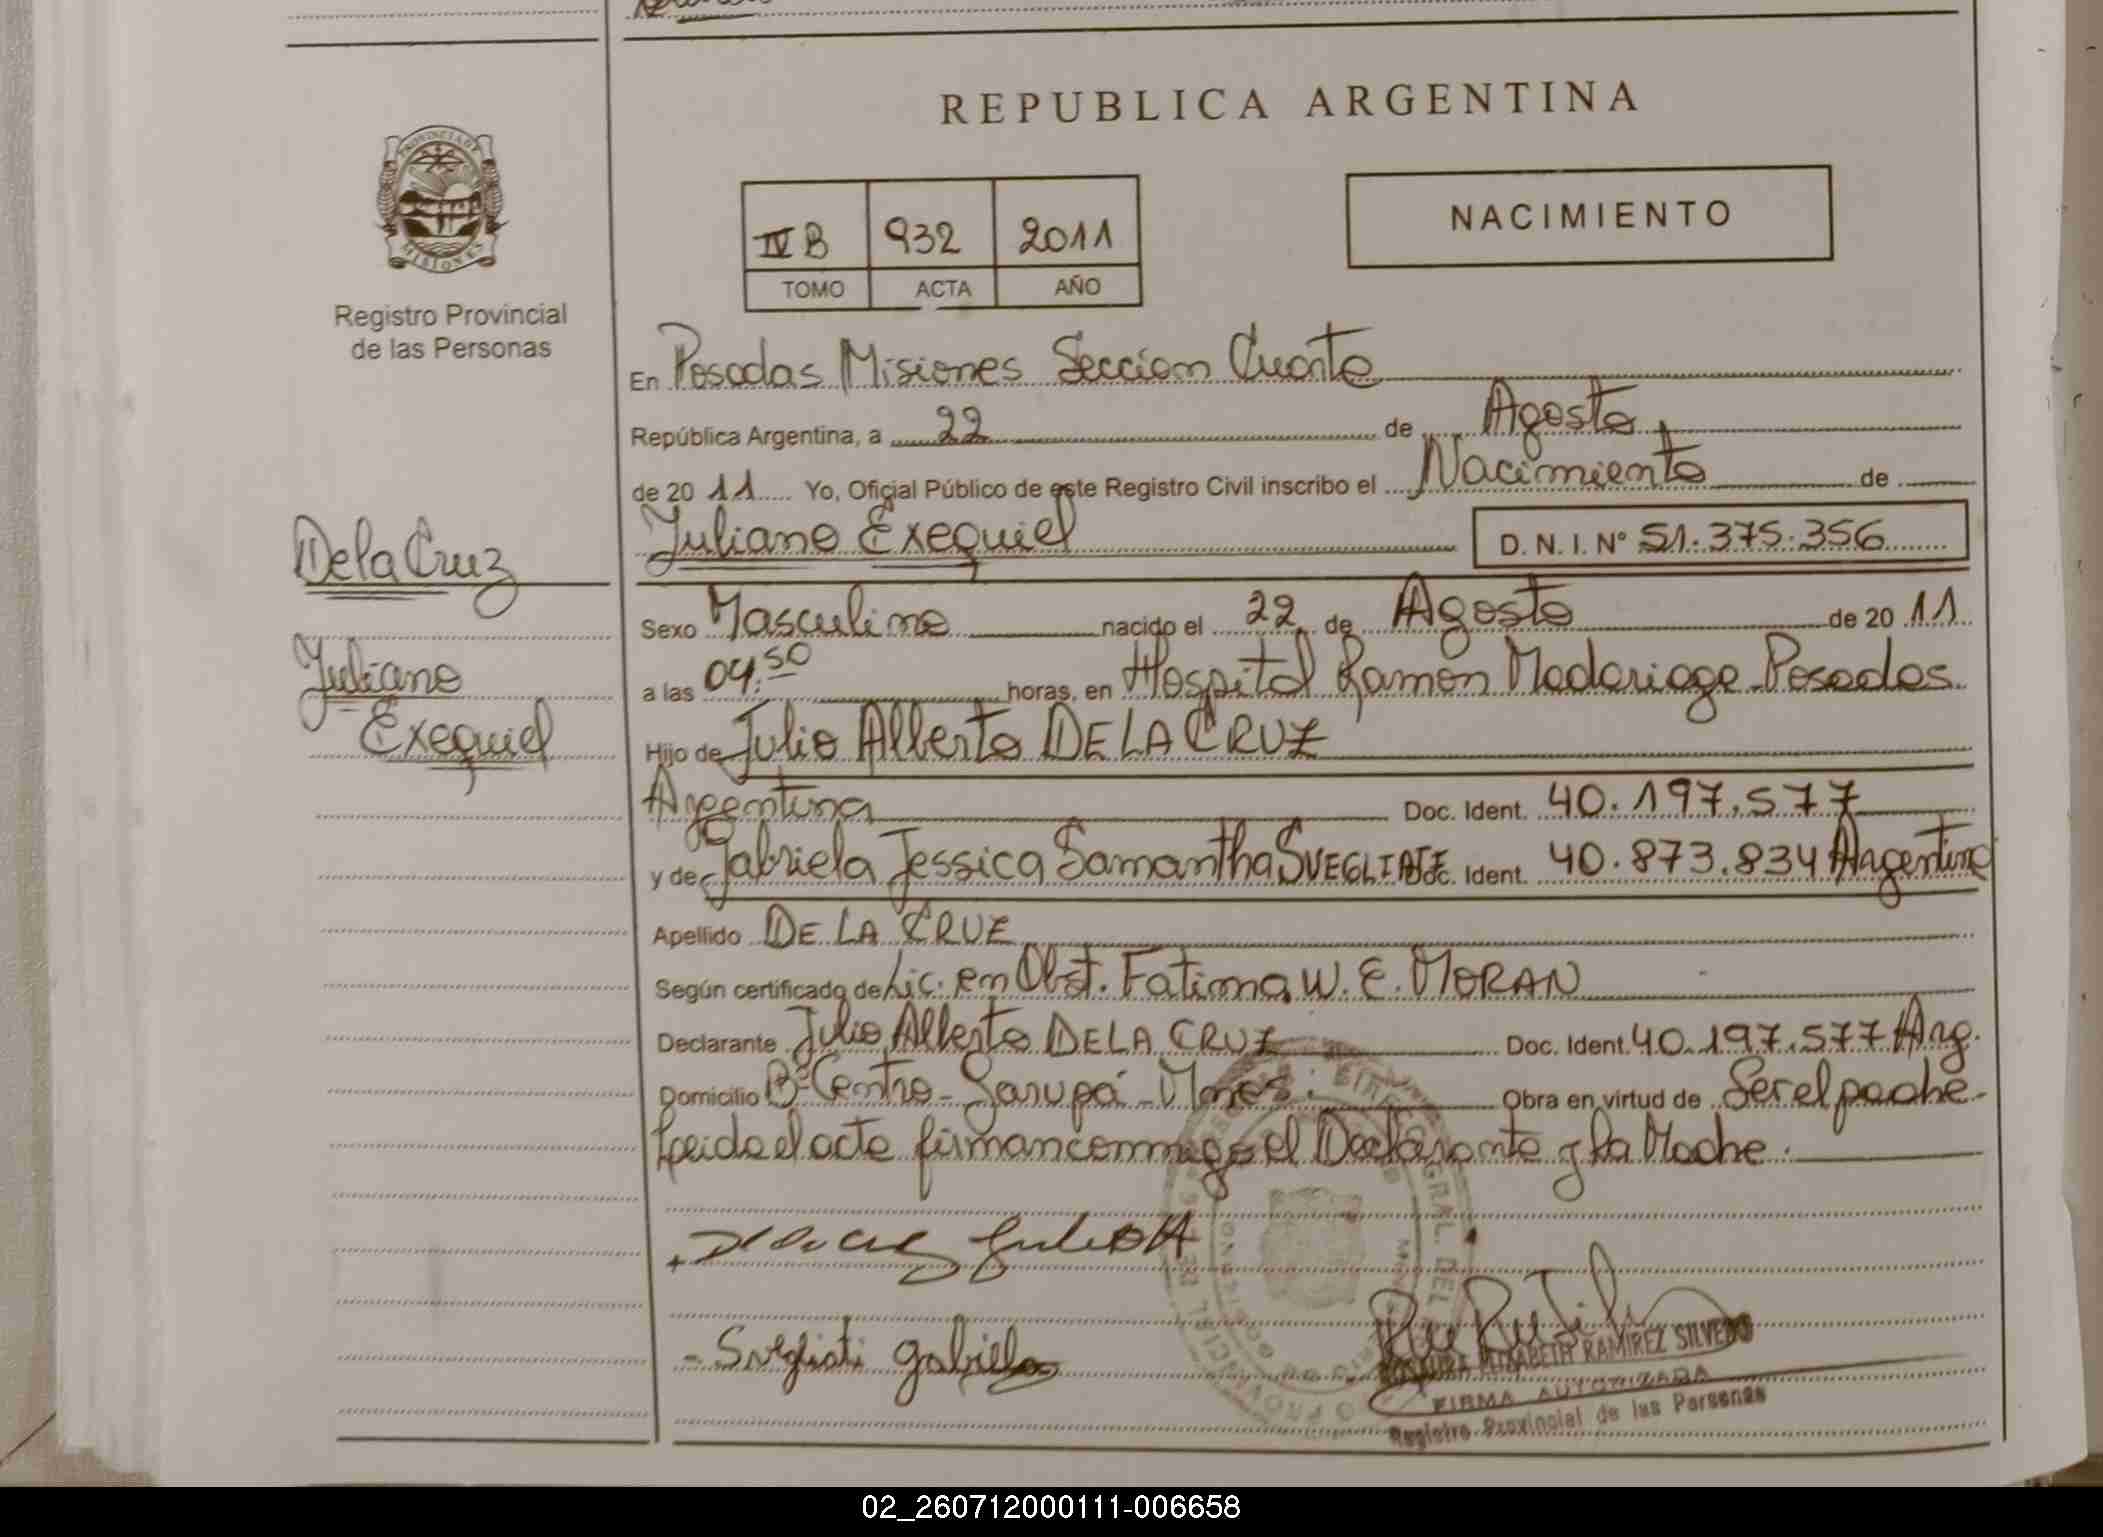 REPUBLICA ARGENTINA
PROVINCIA DE MISIONES
Registro Provincial
de las Personas
IV B 932 2011
TOMO ACTA AÑO
NACIMIENTO
En Posadas Misiones Seccion Cuarta
República Argentina, a 22 de Agosto
de 2011 Yo, Oficial Público de este Registro Civil inscribo el Nacimiento de
Juliano Exequiel D. N. I. N° 51.375.356
De la Cruz
Juliano
Exequiel
Sexo Masculino nacido el 22 de Agosto de 2011
a las 04:50 horas, en Hospital Ramón Madariaga Posadas
Hijo de Julio Alberto DE LA CRUZ
Argentina Doc. Ident. 40.197.577
y de Gabriela Jessica Samantha SVEGLIATI Doc. Ident. 40.873.834 Argentina
Apellido DE LA CRUZ
Según certificado de Lic. en Obst. Fatima W. E. MORAN
Declarante Julio Alberto DE LA CRUZ Doc. Ident. 40.197.577 Arg.
Domicilio Bº Centro - Garupá - Mnes. Obra en virtud de Ser el padre -
Leida el acta firman conmigo el Declarante y la Madre.
Svegliati Gabriela
ELIZABETH RAMIREZ SILVERO
FIRMA AUTORIZADA
Registro Provincial de las Personas
02_260712000111-006658